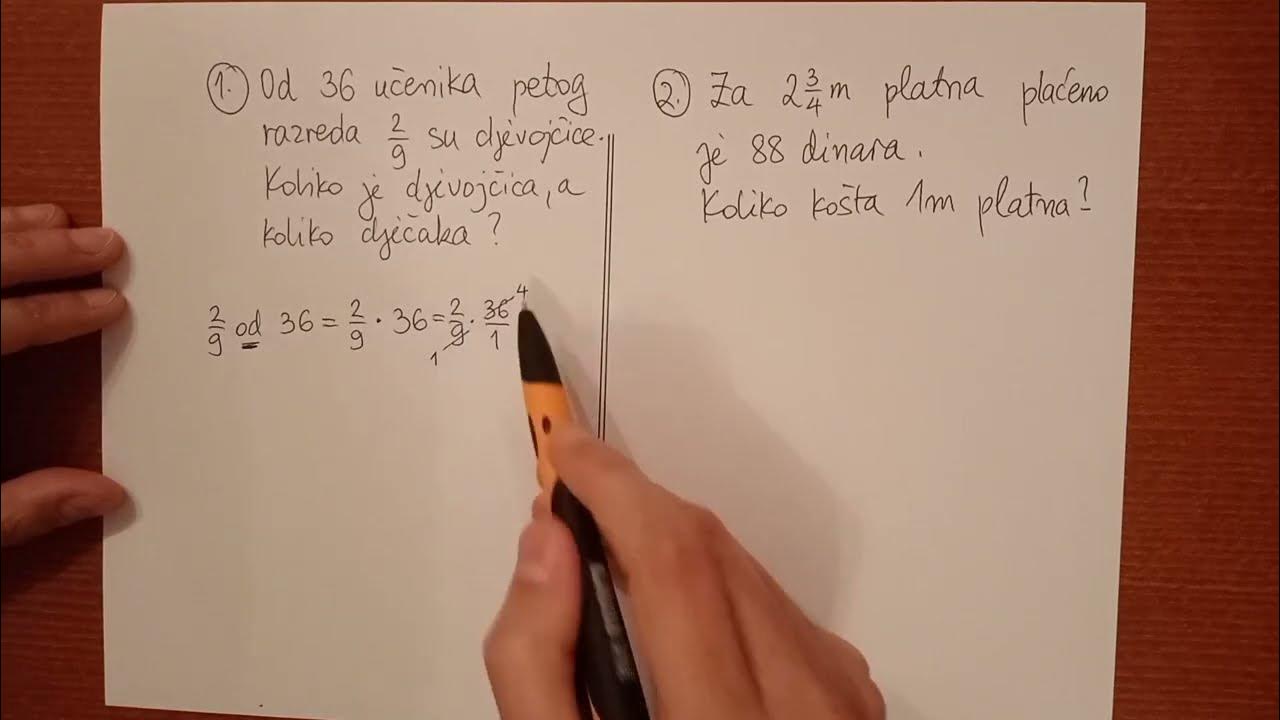 1. Od 36 učenika petog
razreda 2/9 su djevojčice.
Koliko je djevojčica, a
koliko dječaka?
2/9 od 36 = 2/9 · 36 = 2/9 · 36/1
4
1
2. Za 2 3/4 m platna plaćeno
je 88 dinara.
Koliko košta 1m platna?